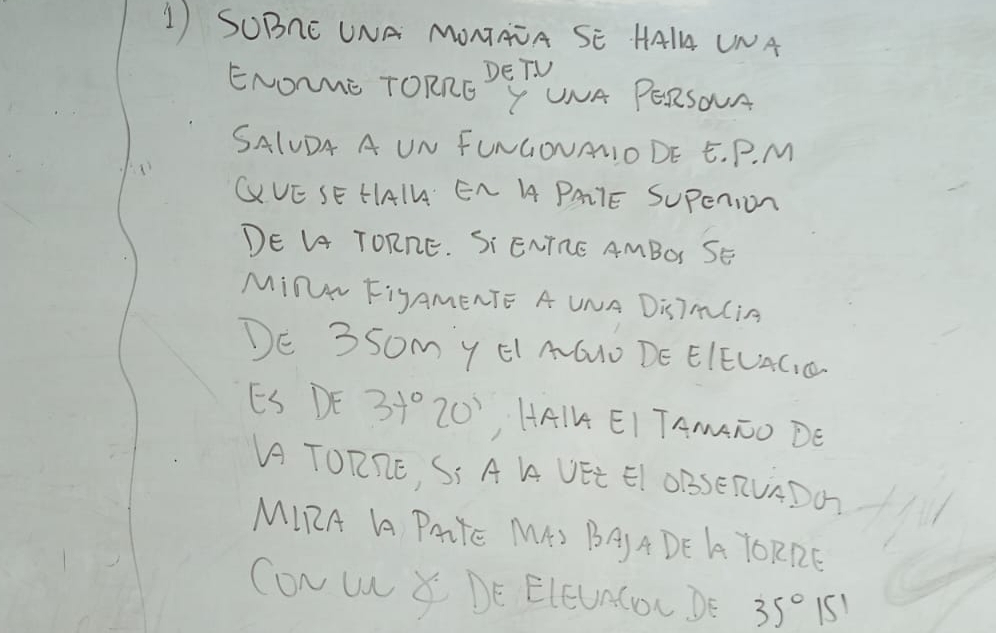 1) SOBRE UNA MONTAÑA SE HALLA UNA
ENORME TORRE DE TV Y UNA PERSONA
SALUDA A UN FUNCIONARIO DE E.P.M
QUE SE HALLA EN LA PARTE SUPERIOR
DE LA TORRE. SI ENTRE AMBOS SE
MIRAN FIJAMENTE A UNA DISTANCIA
DE 350m Y EL ANGULO DE ELEVACIO
ES DE 37° 20', HALLA EL TAMAÑO DE
LA TORRE, SI A LA VEZ EL OBSERVADOR
MIRA LA PARTE MAS BAJA DE LA TORRE
CON UN ∡ DE ELEVACION DE 35° 15'